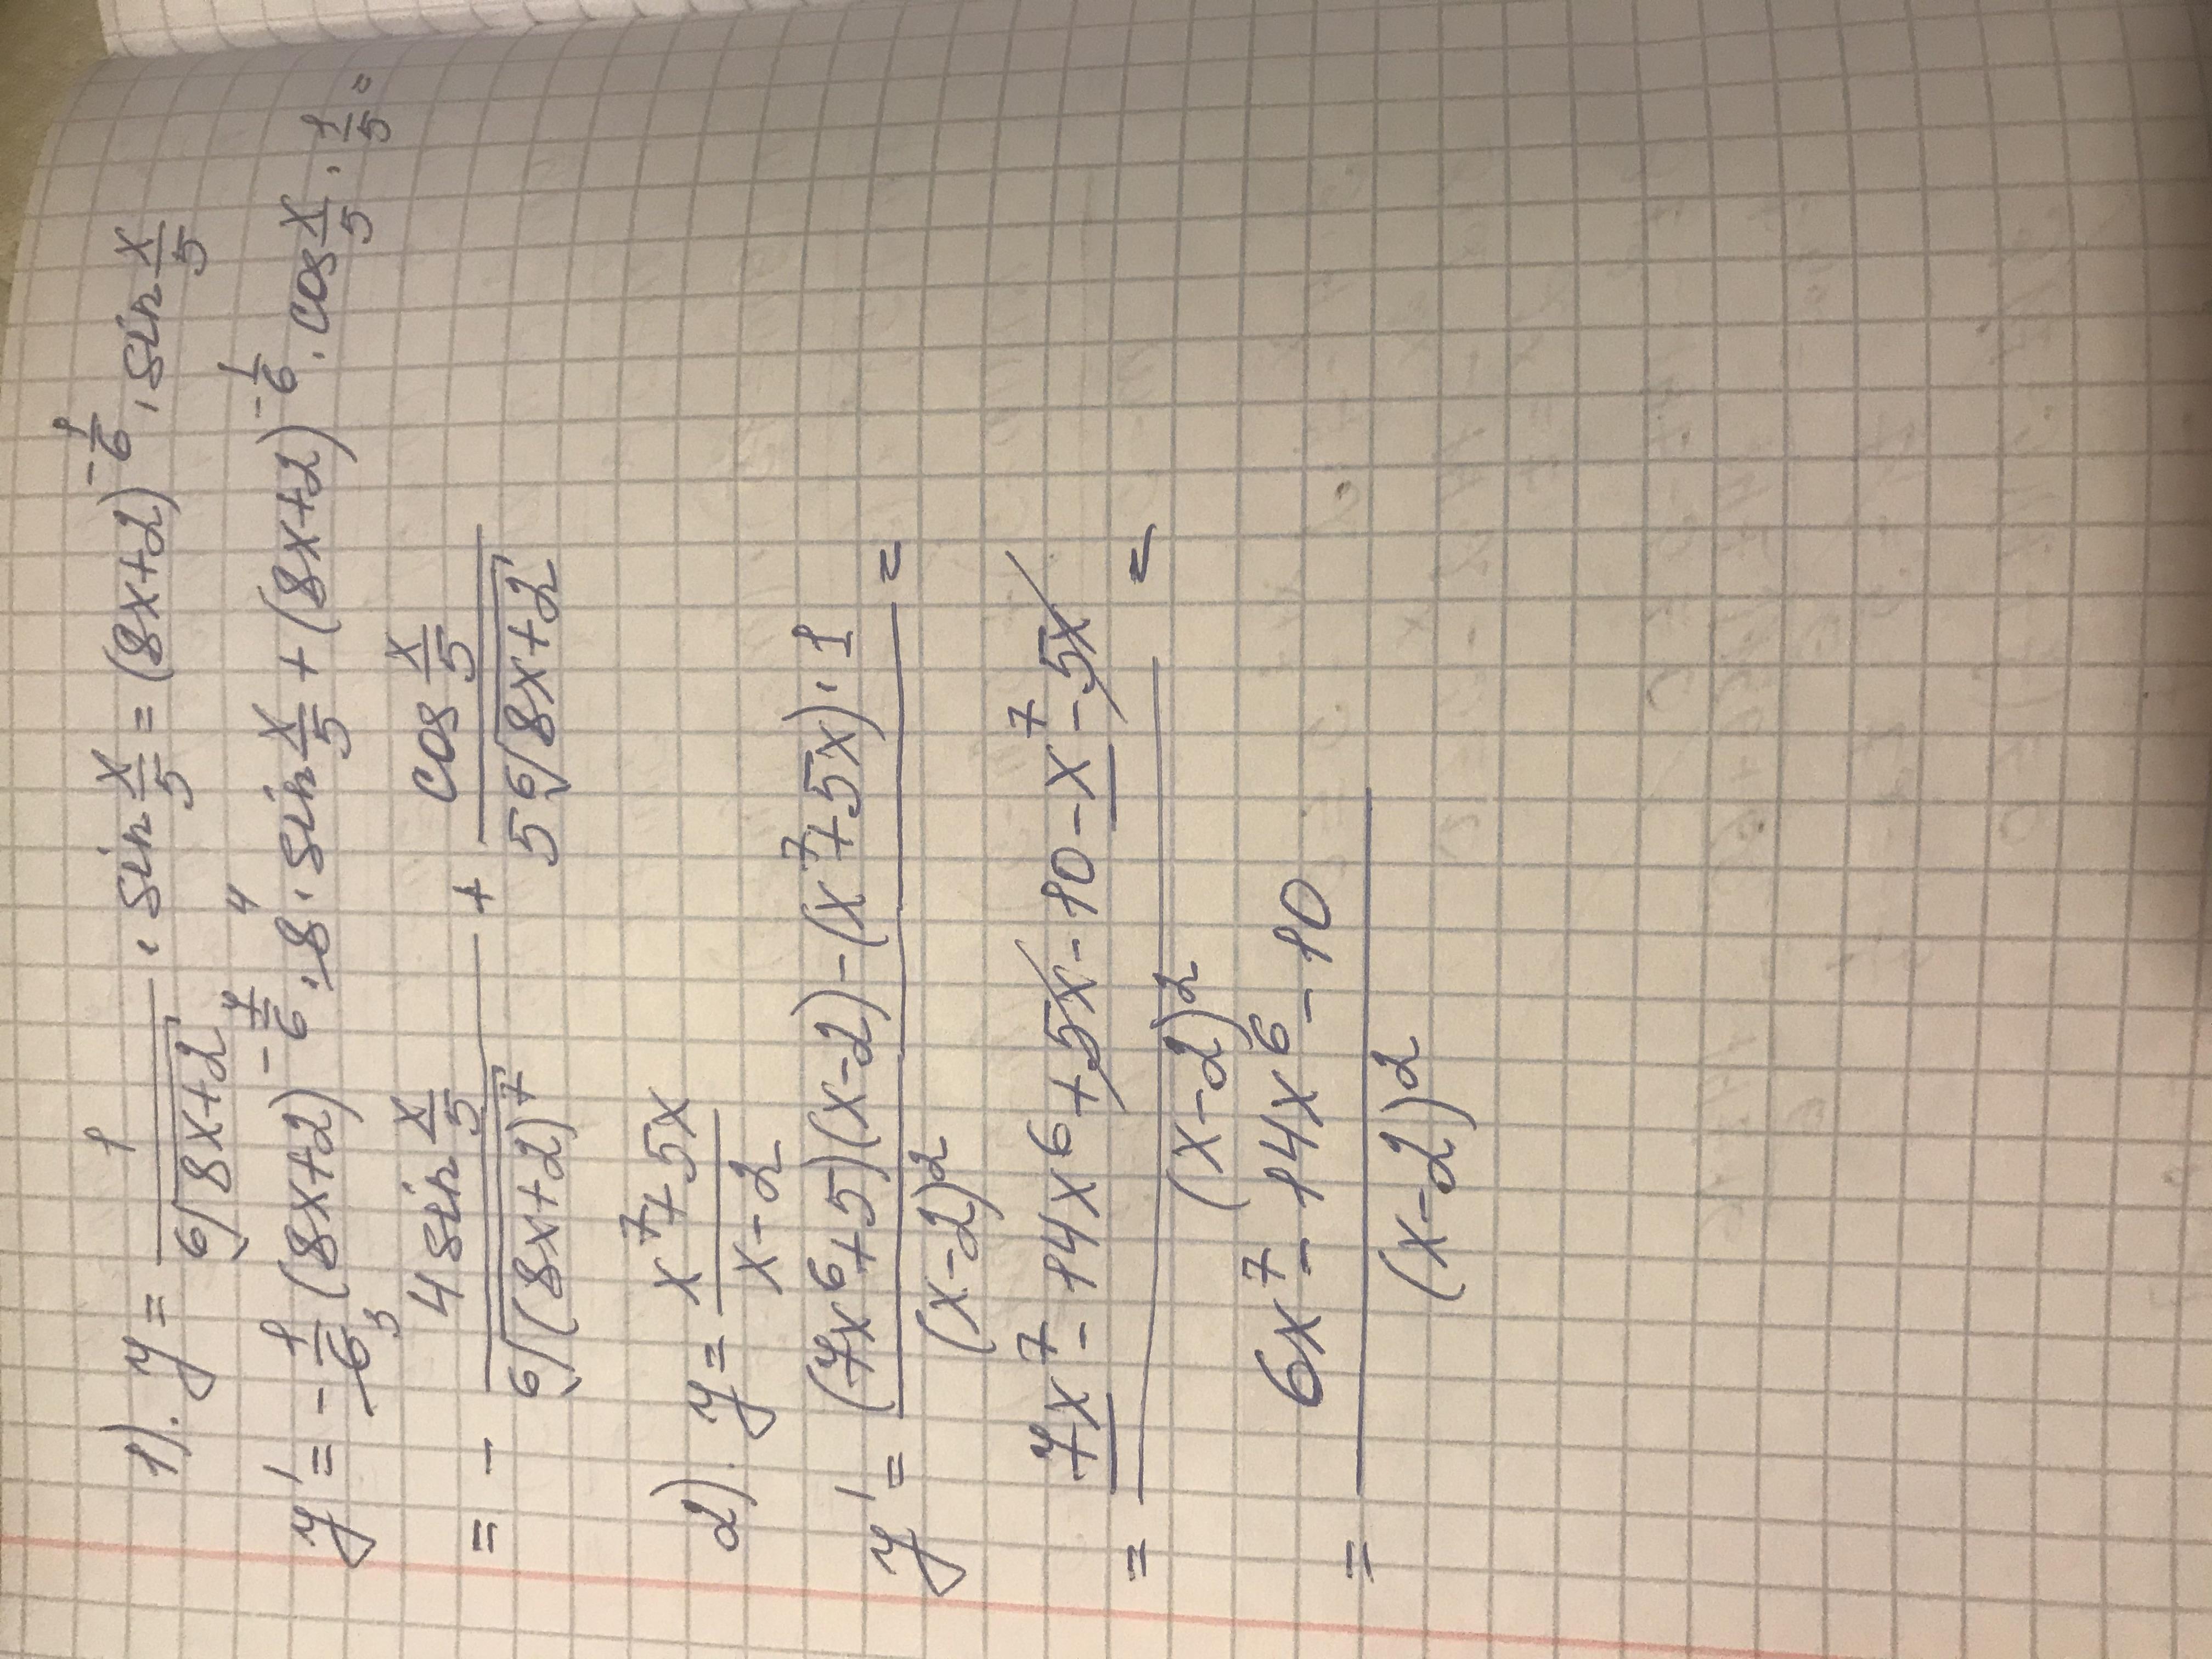 1). y = 1/⁶√(8x+2) · sin x/5 = (8x+2)^(-1/6) · sin x/5
y' = - 1/6 (8x+2)^(-7/6) · 8 · sin x/5 + (8x+2)^(-1/6) · cos x/5 · 1/5 =
= - 4 sin x/5 / 3 ⁶√((8x+2)^7) + cos x/5 / 5 ⁶√(8x+2)
2). y = (x^7+5x)/(x-2)
y' = ((7x^6+5)(x-2)-(x^7+5x)·1)/(x-2)^2 =
= (7x^7-14x^6+5x-10-x^7-5x)/(x-2)^2 =
= (6x^7-14x^6-10)/(x-2)^2